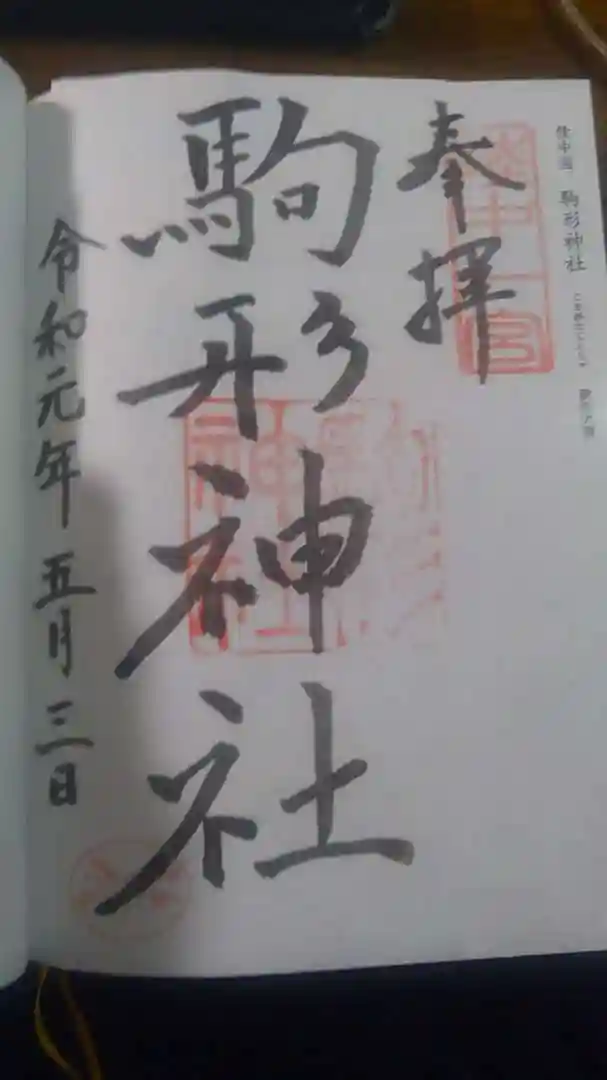 駒形神社
奉拝
駒形神社
令和元年五月三日